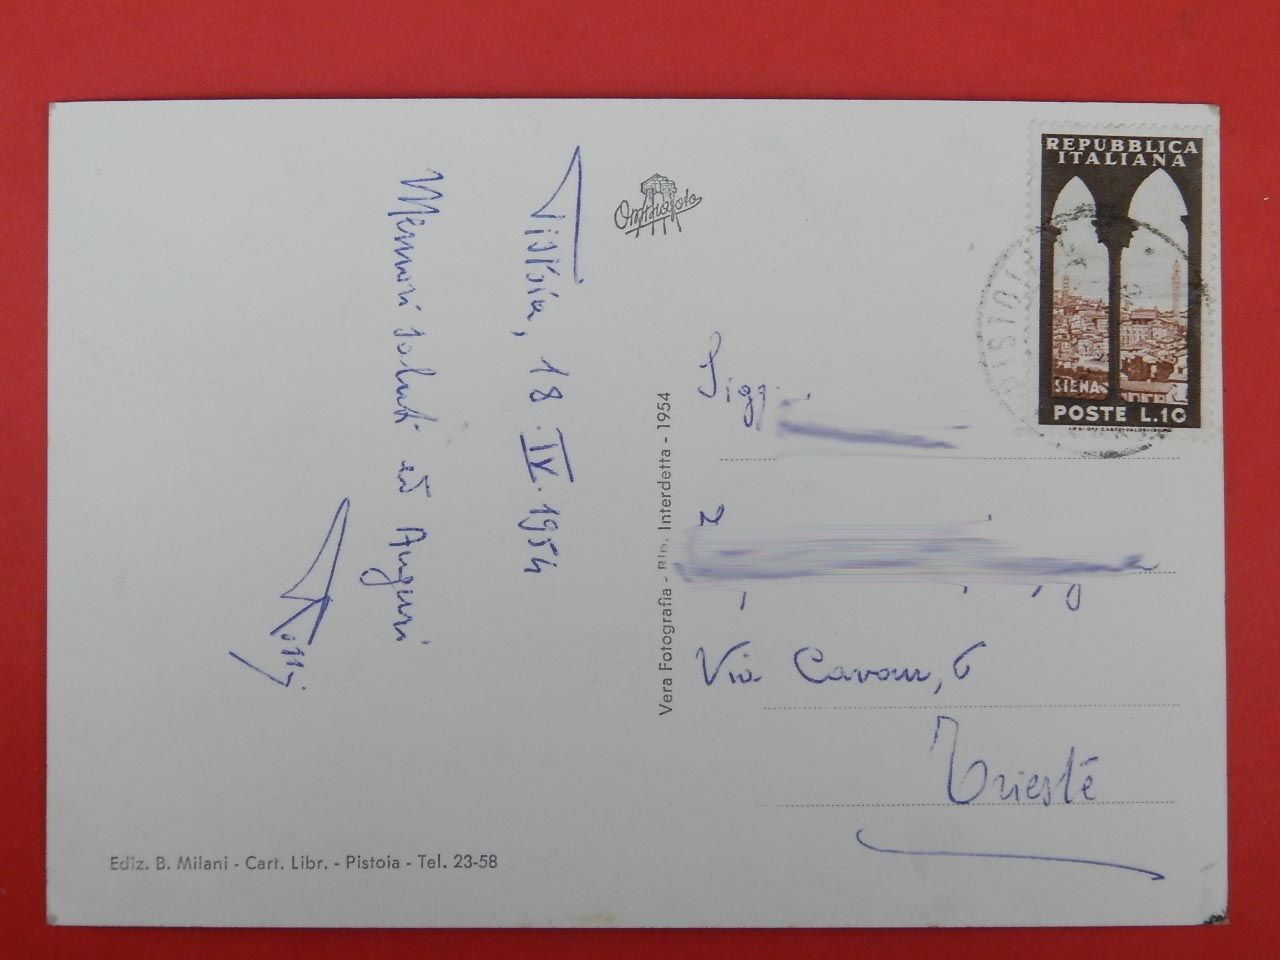 Pistoia, 18.IV.1954
Memori saluti ed Auguri
Omniafoto
Vera Fotografia - Rip. Interdetta - 1954
REPUBBLICA
ITALIANA
SIENA
POSTE L.10
PISTOIA
Sigg.
Via Cavour, 6
Trieste
Ediz. B. Milani - Cart. Libr. - Pistoia - Tel. 23-58